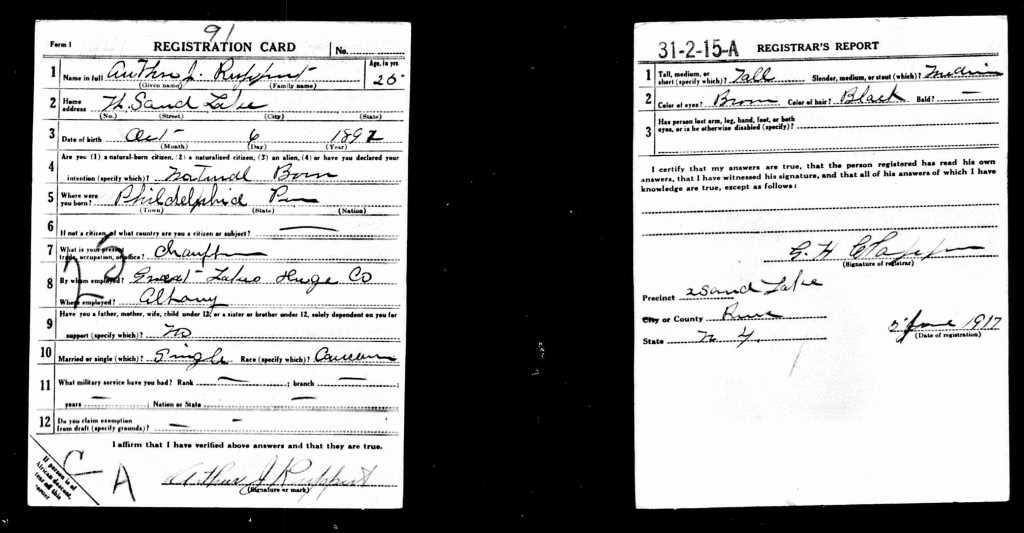 91
Form 1 REGISTRATION CARD No.
1 Name in full Arthur J. Ruppert Age, in yrs 25
(Given name) (Family name)
2 Home address W. Sand Lake
(No.) (Street) (City) (State)
3 Date of birth Oct 6 1892
(Month) (Day) (Year)
4 Are you (1) a natural-born citizen, (2) a naturalized citizen, (3) an alien, (4) or have you declared your
intention (specify which)? Natural Born
5 Where were you born? Philadelphia
(Town) (State) (Nation)
6 If not a citizen, of what country are you a citizen or subject?
7 What is your present trade, occupation, or office?
8 By whom employed? Great Lakes Co
Where employed? Albany
9 Have you a father, mother, wife, child under 12, or a sister or brother under 12, solely dependent on you for
support (specify which)? No
10 Married or single (which)? Single Race (specify which)?
11 What military service have you had? Rank ; branch ;
years ; Nation or State
12 Do you claim exemption from draft (specify grounds)?
I affirm that I have verified above answers and that they are true.
Arthur J Ruppert
(Signature or mark)
If person is of African descent,
A
31-2-15-A REGISTRAR'S REPORT
1 Tall, medium, or short (specify which)? Tall Slender, medium, or stout (which)? Medium
2 Color of eyes? Brown Color of hair? Black Bald?
3 Has person lost arm, leg, hand, foot, or both
eyes, or is he otherwise disabled (specify)?
I certify that my answers are true, that the person registered has read his own
answers, that I have witnessed his signature, and that all of his answers of which I have
knowledge are true, except as follows:
G. H
(Signature of registrar)
Precinct 2 Sand Lake
City or County
State N. Y.
5 June 1917
(Date of registration)